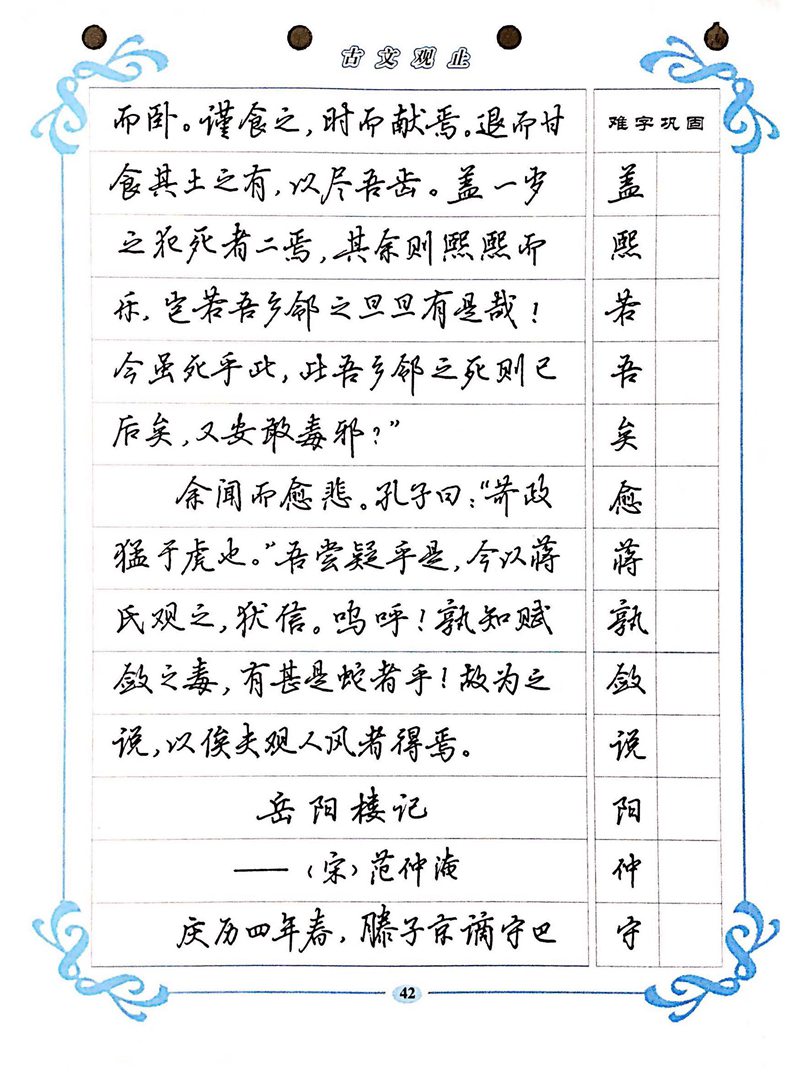 古文观止
而卧。谨食之，时而献焉。退而甘
食其土之有，以尽吾齿。盖一岁
之犯死者二焉，其余则熙熙而
乐，岂若吾乡邻之旦旦有是哉！
今虽死乎此，比吾乡邻之死则已
后矣，又安敢毒邪？”
余闻而愈悲。孔子曰：“苛政
猛于虎也。”吾尝疑乎是，今以蒋
氏观之，犹信。呜呼！孰知赋
敛之毒，有甚是蛇者乎！故为之
说，以俟夫观人风者得焉。
岳阳楼记
——（宋）范仲淹
庆历四年春，滕子京谪守巴
难字巩固
盖
熙
若
吾
矣
愈
蒋
孰
敛
说
阳
仲
守
42